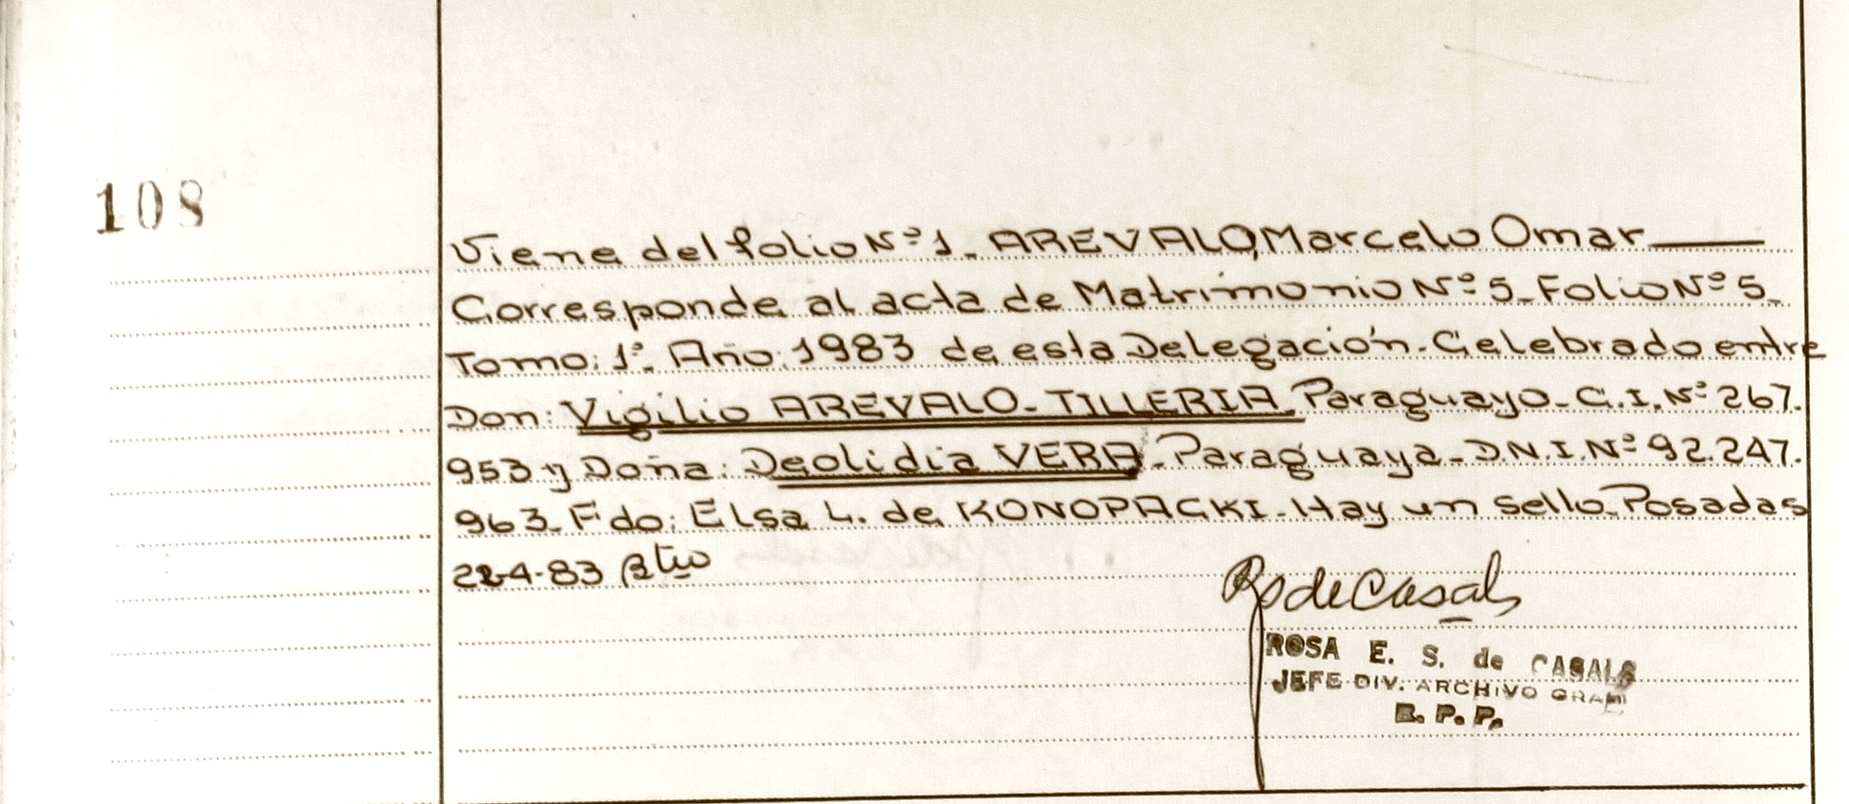 108
Viene del folio Nº 1_ AREVALO, Marcelo Omar
Corresponde al acta de Matrimonio Nº 5_ Folio Nº 5_
Tomo: 1º_ Año: 1983 de esta Delegación. Celebrado entre
Don: Vigilio AREVALO_ TILLERIA Paraguayo_ C.I. Nº 267.
953 y Doña: Deolidia VERA_ Paraguaya_ D.N.I. Nº 92.247.
963_ Fdo: Elsa L. de KONOPACKI_ Hay un sello_ Posadas
-4-83
R de Casals
ROSA E. S. de CASALS
JEFE DIV. ARCHIVO GRAL
R. P. P.